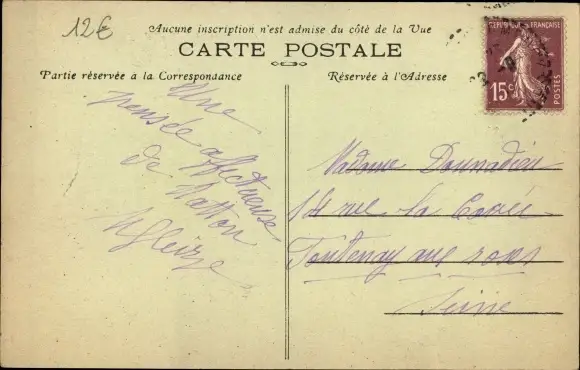 12€
Aucune inscription n'est admise du côté de la Vue
CARTE POSTALE
Partie réservée à la Correspondance
Réservée à l'Adresse
REPUBLIQUE FRANÇAISE
15c
POSTES
Une
pensée affectueuse
de Watton
Madame Donnadieu
14 rue la
Fontenay aux roses
Seine